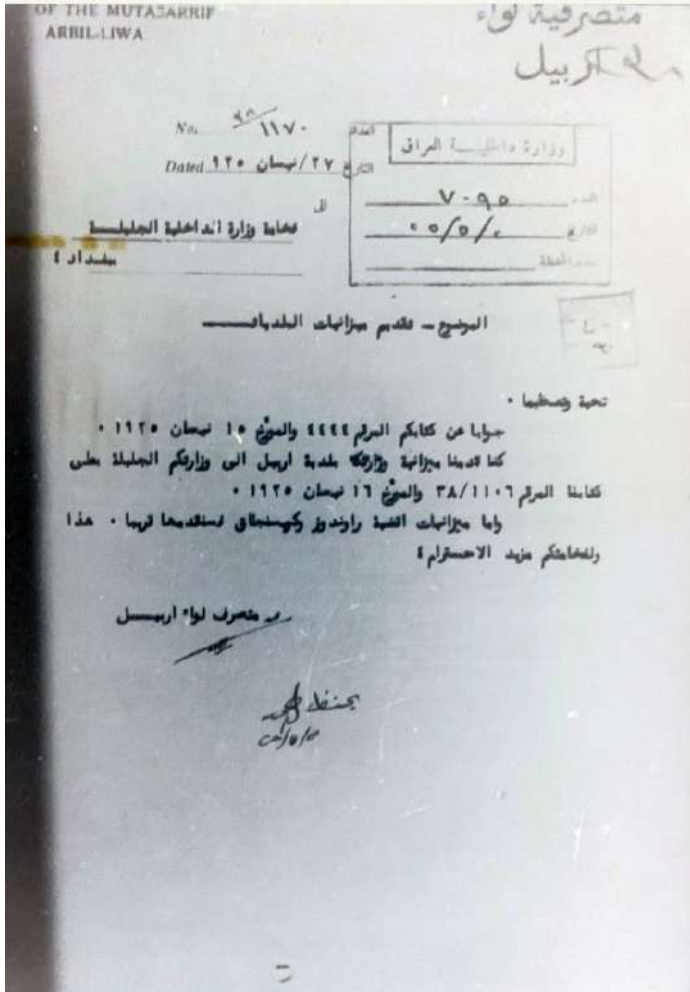 OF THE MUTASARRIF
ARBIL-LIWA
متصرفية لواء
اربيل
No. ٣٨/١١٧٠ العدد
Dated ٢٧/نيسان ٩٢٥ التاريخ
وزارة داخلية العراق
العدد ٧٠٩٥
التاريخ
الى
فخامة وزارة الداخلية الجليلة
بغداد ؛
الموضوع – تقديم ميزانيات البلديات
تحية وتعظيما .
جوابا عن كتابكم المرقم ٤٤٤٤ والمورخ ١٥ نيسان ١٩٢٥ .
كنا قدمنا ميزانية بلدية اربيل الى وزارتكم الجليلة بطى
كتابنا المرقم ٣٨/١١٠٦ والمورخ ١٦ نيسان ١٩٢٥ .
واما ميزانيات اقضية راوندوز وكويسنجاق فسنقدمها قريبا . هذا
ولفخامتكم مزيد الاحترام ؛
متصرف لواء اربيل
يحفظ